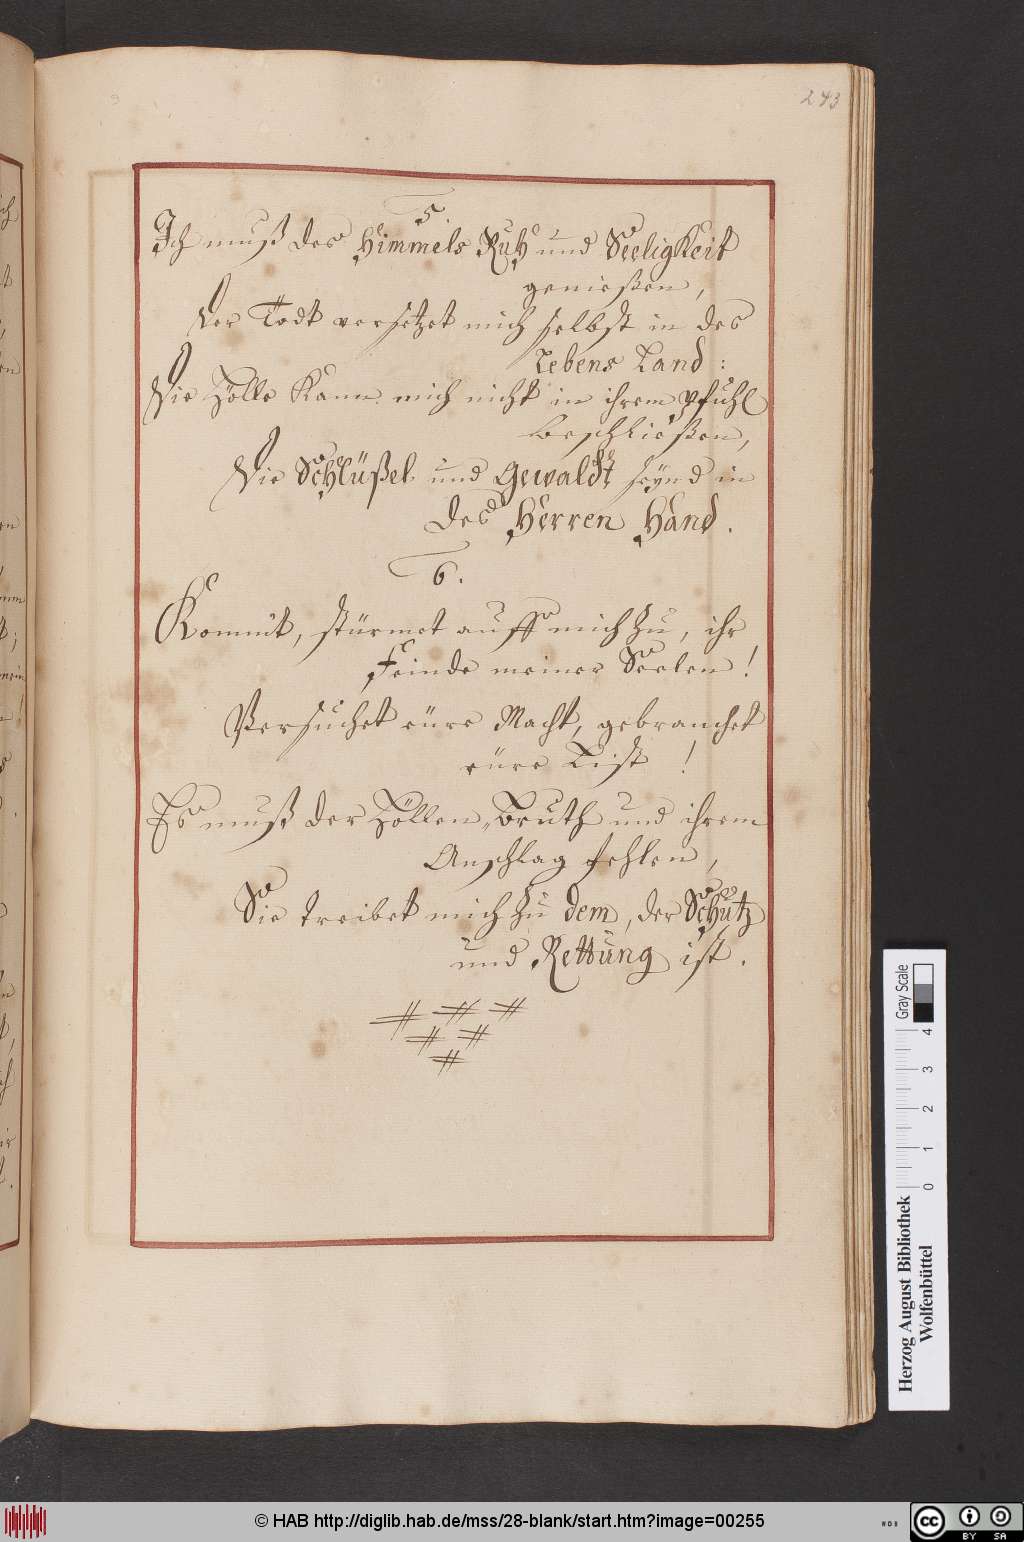 243
5.
Ich muß des Himmels Ruh und Seeligkeit
genießen,
Der Todt versetzet mich selbst in des
Lebens Land:
Die Hölle kann mich nicht in ihrem Pfuhl
beschließen,
Die Schlüßel und Gewaldt seynd in
des Herren Hand.
6.
Kommt, stürmet auff mich zu, ihr
Feinde meiner Seelen!
Versuchet eüre Macht, gebrauchet
eüre List!
Es muß der Höllen-Bruth und ihrem
Anschlag fehlen,
Sie treibet mich zu dem, der Schutz
und Rettung ist.
Gray Scale
0 1 2 3 4
Herzog August Bibliothek
Wolfenbüttel
© HAB http://diglib.hab.de/mss/28-blank/start.htm?image=00255
WDB
CC BY SA